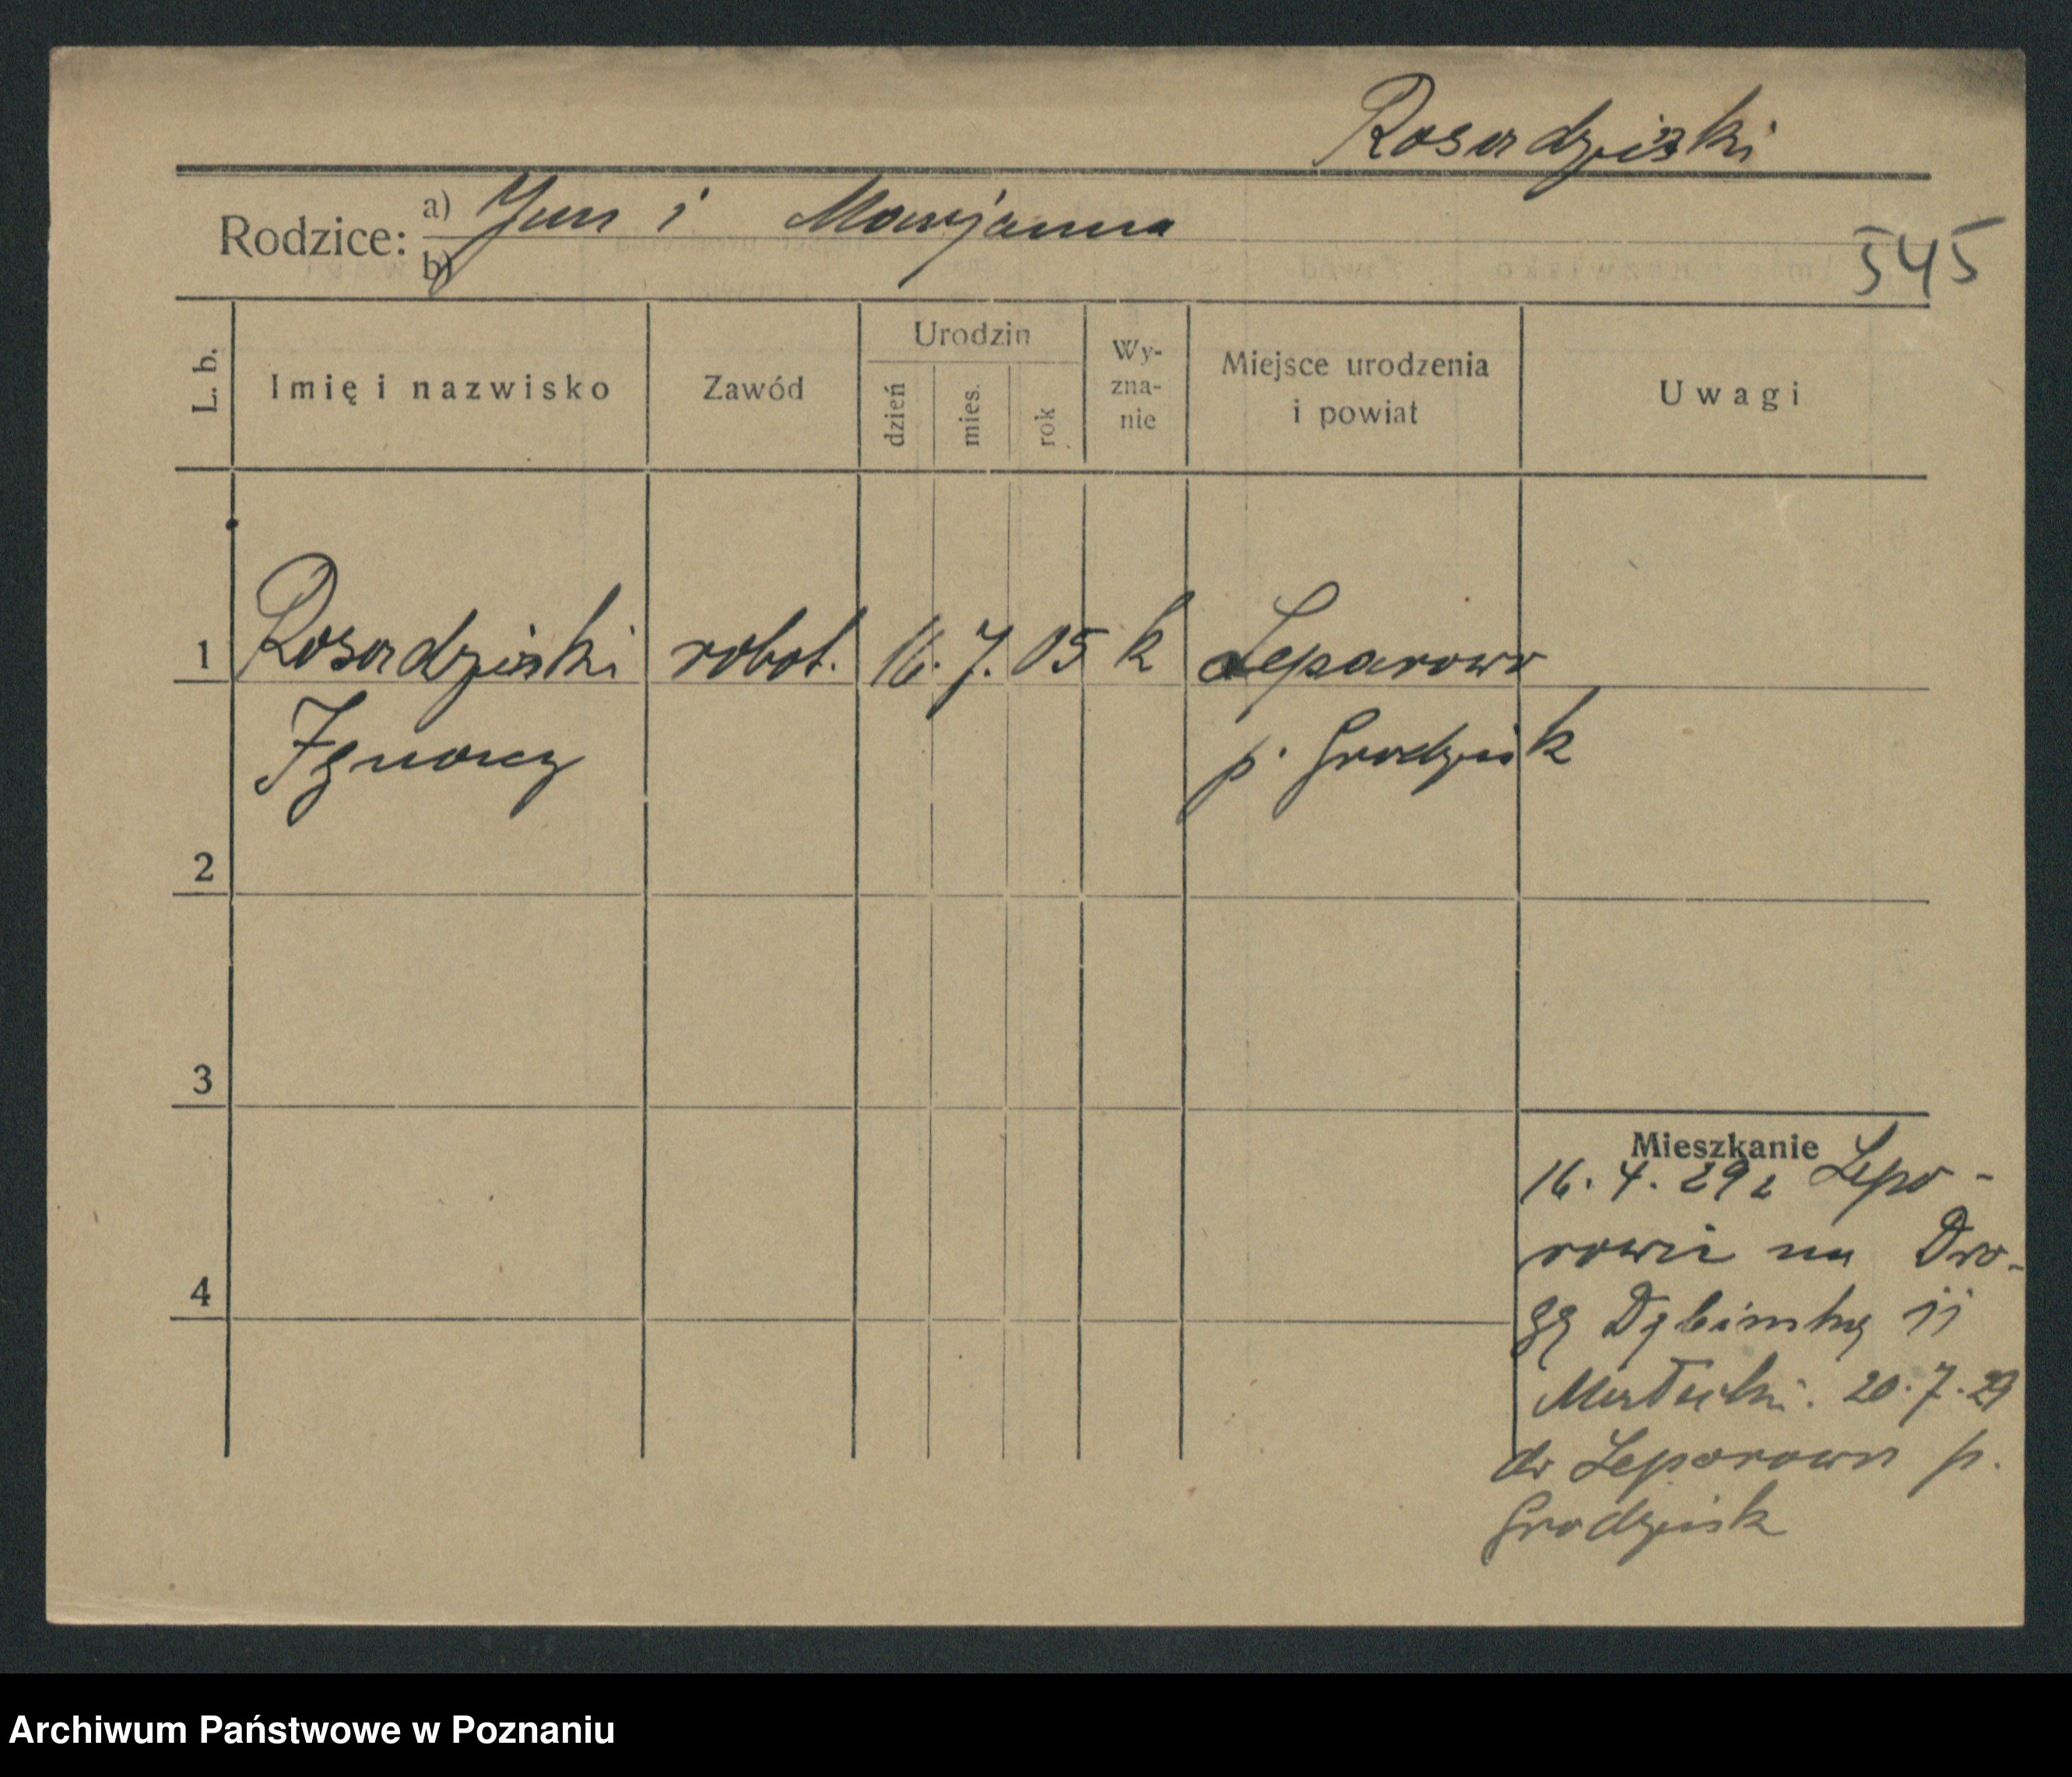 Rosadziński
Rodzice: a) Jan i Marjanna
b)
545
L. b.
Imię i nazwisko
Zawód
Urodzin
dzień
mies.
rok
Wy-
zna-
nie
Miejsce urodzenia
i powiat
Uwagi
1 Rosadziński robot. 16. 7. 05 k Leparowo
Ignacy p. Grodzisk
2
3
4
Mieszkanie
16. 4. 29 z Lepo-
rowa na Dro-
gę Dębińską 11
20. 7. 29
do Leporowo p.
Grodzisk
Archiwum Państwowe w Poznaniu